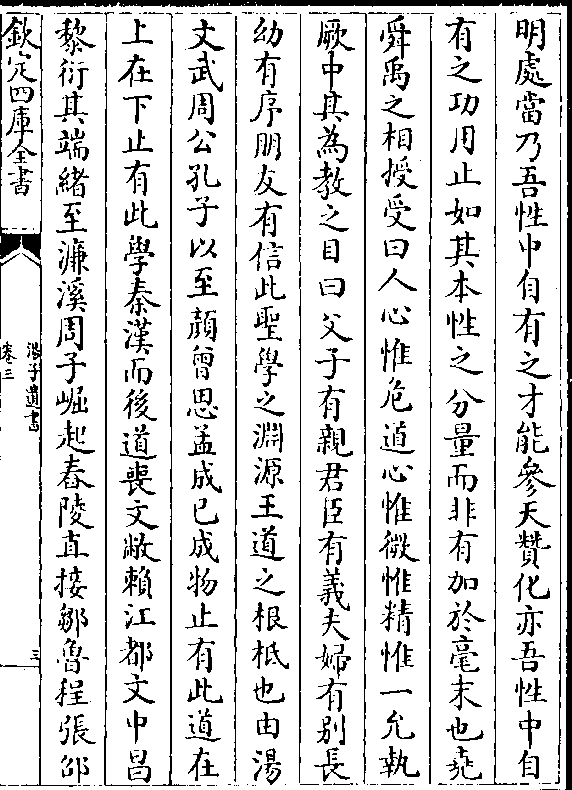 明處當乃吾性中自有之才能參天贊化亦吾性中自
有之功用止如其本性之分量而非有加於毫末也堯
舜禹之相授受曰人心惟危道心惟微惟精惟一允執
厥中其為教之目曰父子有親君臣有義夫婦有别長
幼有序朋友有信此聖學之淵源王道之根柢也由湯
文武周公孔子以至顔曾思孟成已成物止有此道在
上在下止有此學秦漢而後道喪文敝賴江都文中昌
黎衍其端緒至濂溪周子崛起舂陵直接鄒魯程張邵
欽定四庫全書
湯子遺書
卷三
三